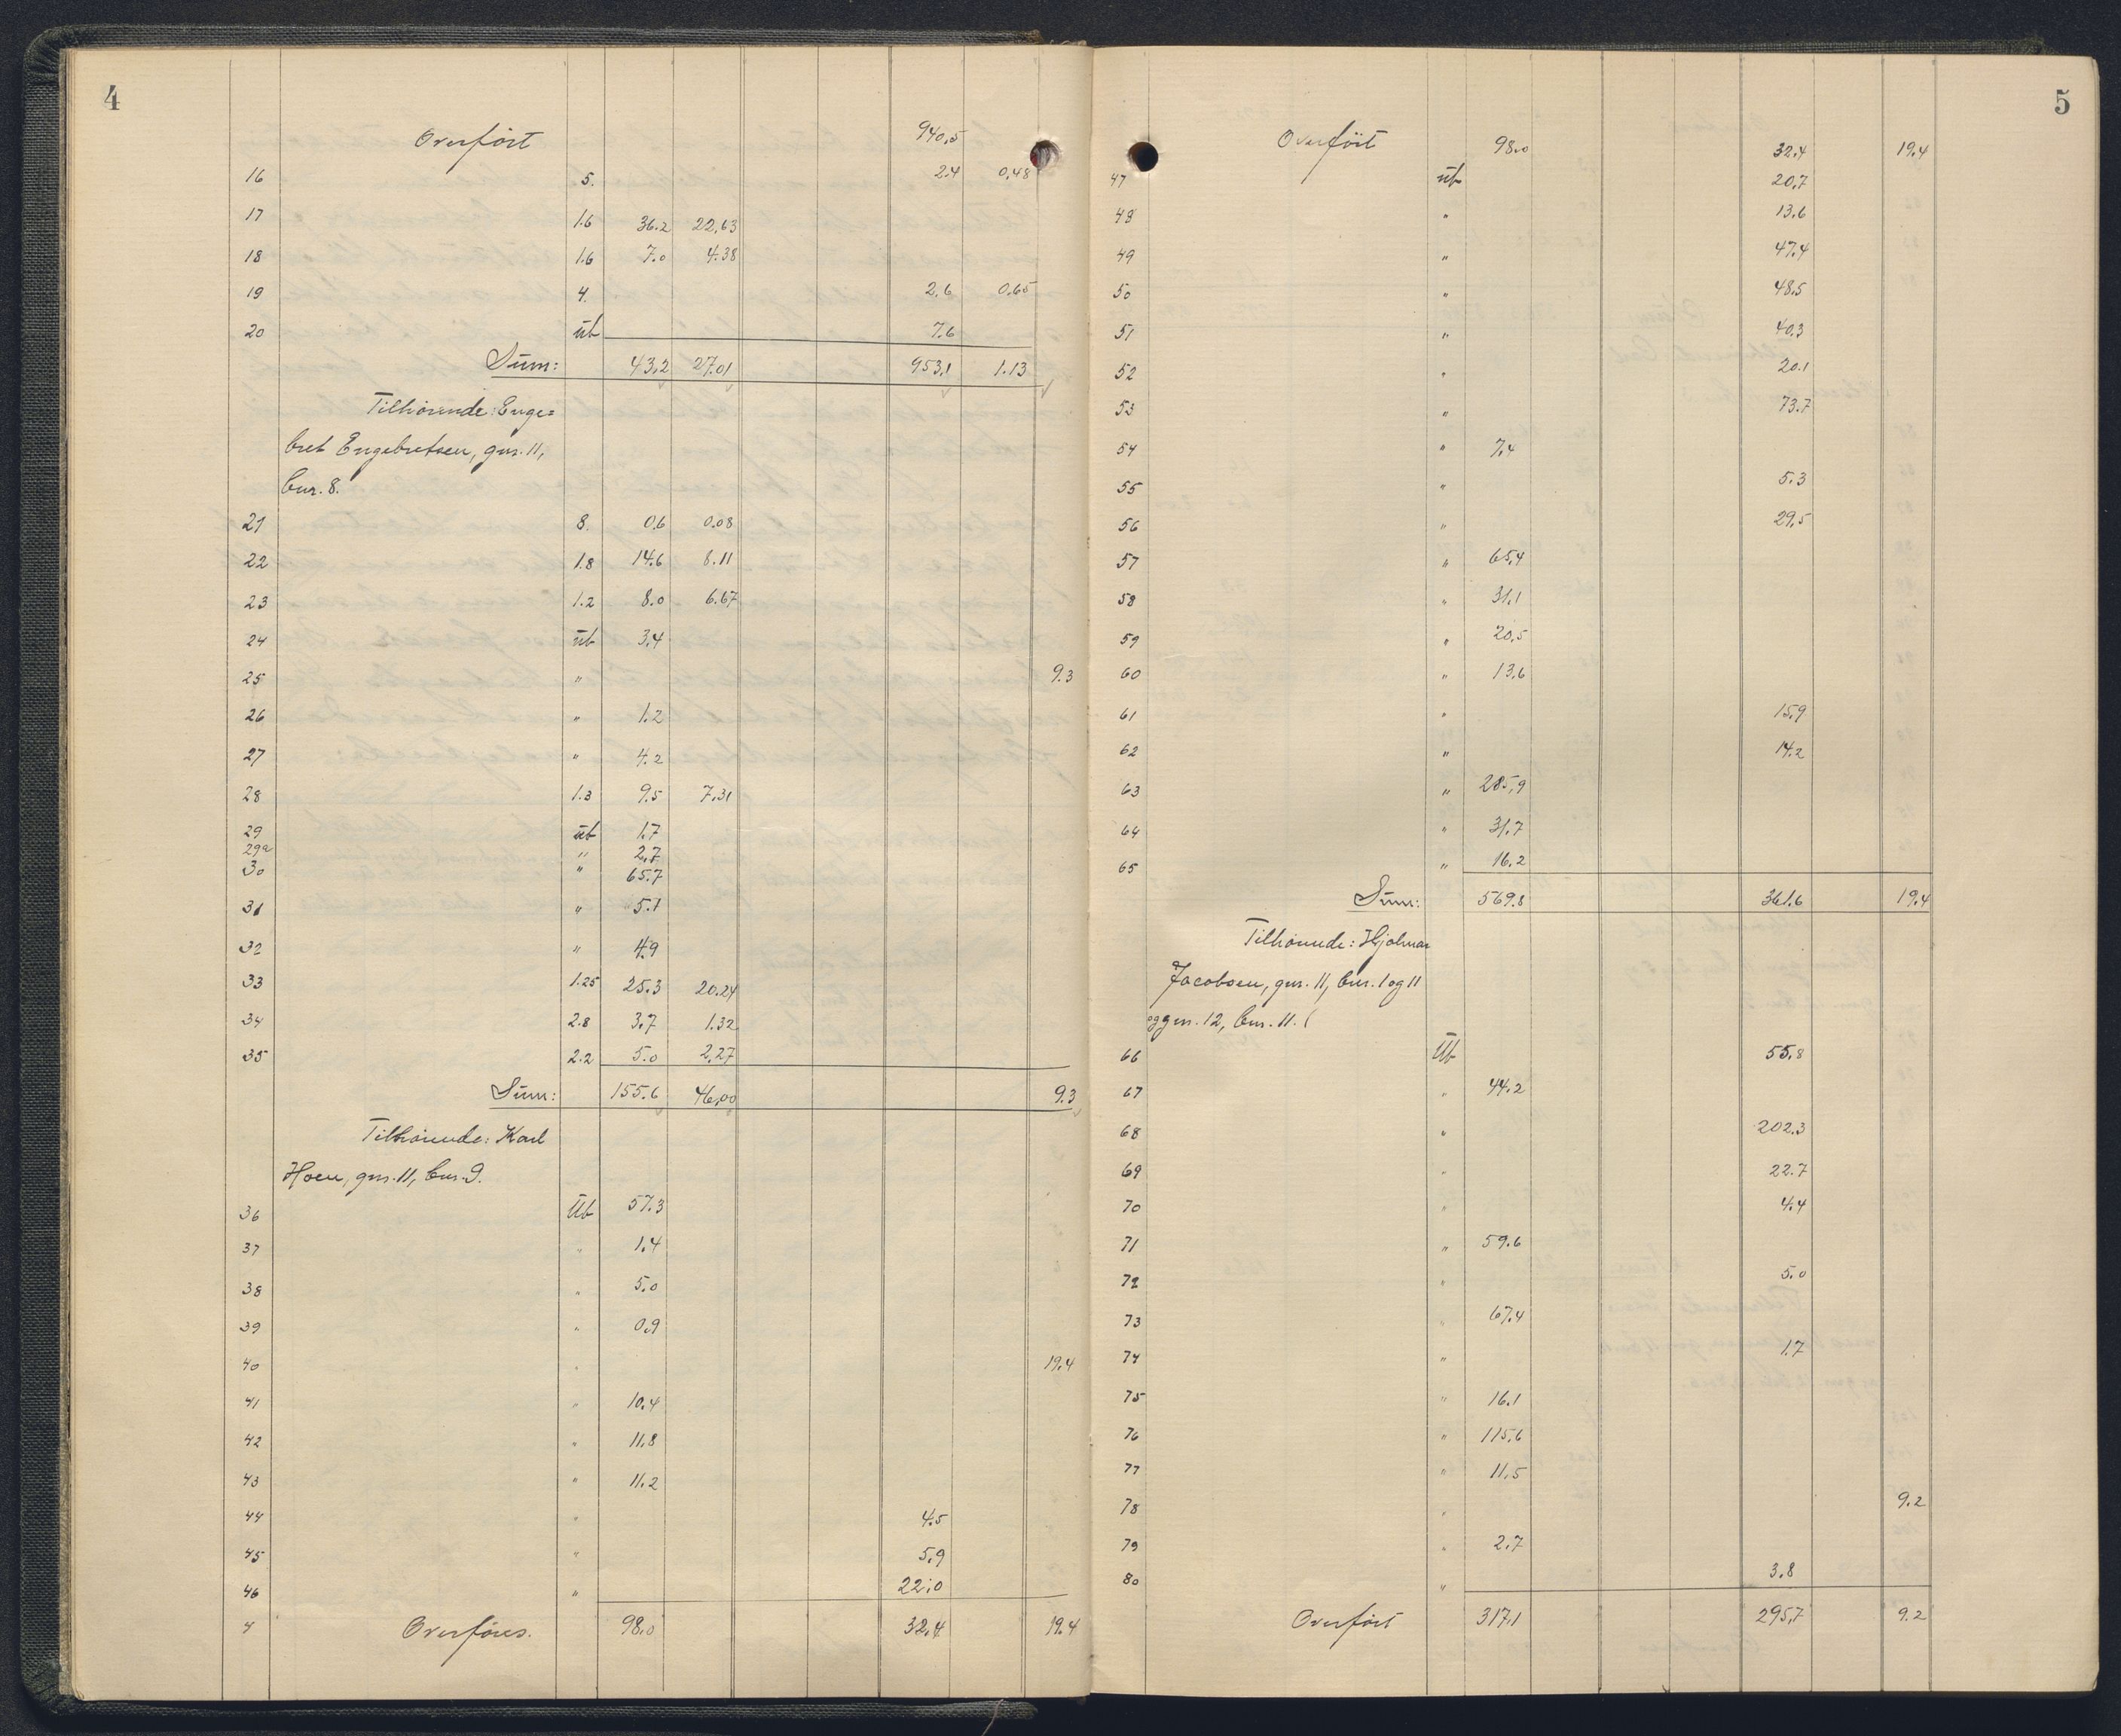 4
Overført 940,5
16 5. 2.4 0,48
17 1.6 36.2 22,63
18 1.6 7.0 4.38
19 4. 2.6 0.65
20 üb 7.6
Süm: 43,2 27.01 953,1 1.13
Tilhörende: Enge=
bret Engebretsen, gnr. 11,
bnr. 8.
21 8. 0.6 0.08
22 1.8 14.6 8.11
23 1.2 8.0 6.67
24 üb 3,4
25 " 9.3
26 " 1.2
27 " 4.2
28 1.3 9.5 7,31
29 üb 1.7
29a " 2,7
30 " 65.7
31 " 5.1
32 " 4.9
33 1.25 25.3 20.24
34 2.8 3,7 1.32
35 2.2 5.0 2,27
Süm: 155.6 46,00 9.3
Tilhörende: Karl
Hoen, gnr. 11, bnr. 9.
36 Üb 57.3
37 " 1.4
38 " 5.0
39 " 0.9
40 " 19.4
41 " 10.4
42 " 11.8
43 " 11.2
44 " 4.5
45 " 5,9
46 " 22,0
4 Overføres. 98,0 32,4 19.4
5
Overført 98.0 32.4 19.4
47 üb 20,7
48 " 13.6
49 " 47.4
50 " 48,5
51 " 40.3
52 " 20.1
53 " 73.7
54 " 7,4
55 " 5.3
56 " 29,5
57 " 65,4
58 " 31,1
59 " 20,5
60 " 13,6
61 " 15,9
62 " 14.2
63 " 285,9
64 " 31,7
65 " 16.2
Süm: 569.8 361.6 19.4
Tilhörende: Hjalmar
Jacobsen, gnr. 11, bnr. 1 og 11
og gnr. 12, bnr. 11.
66 Üb 55,8
67 " 44.2
68 " 202.3
69 " 22.7
70 " 4.4
71 " 59.6
72 " 5.0
73 " 67.4
74 " 1.7
75 " 16.1
76 " 115,6
77 " 11.5
78 " 9.2
79 " 2.7
80 " 3.8
Overført 317,1 295,7 9.2